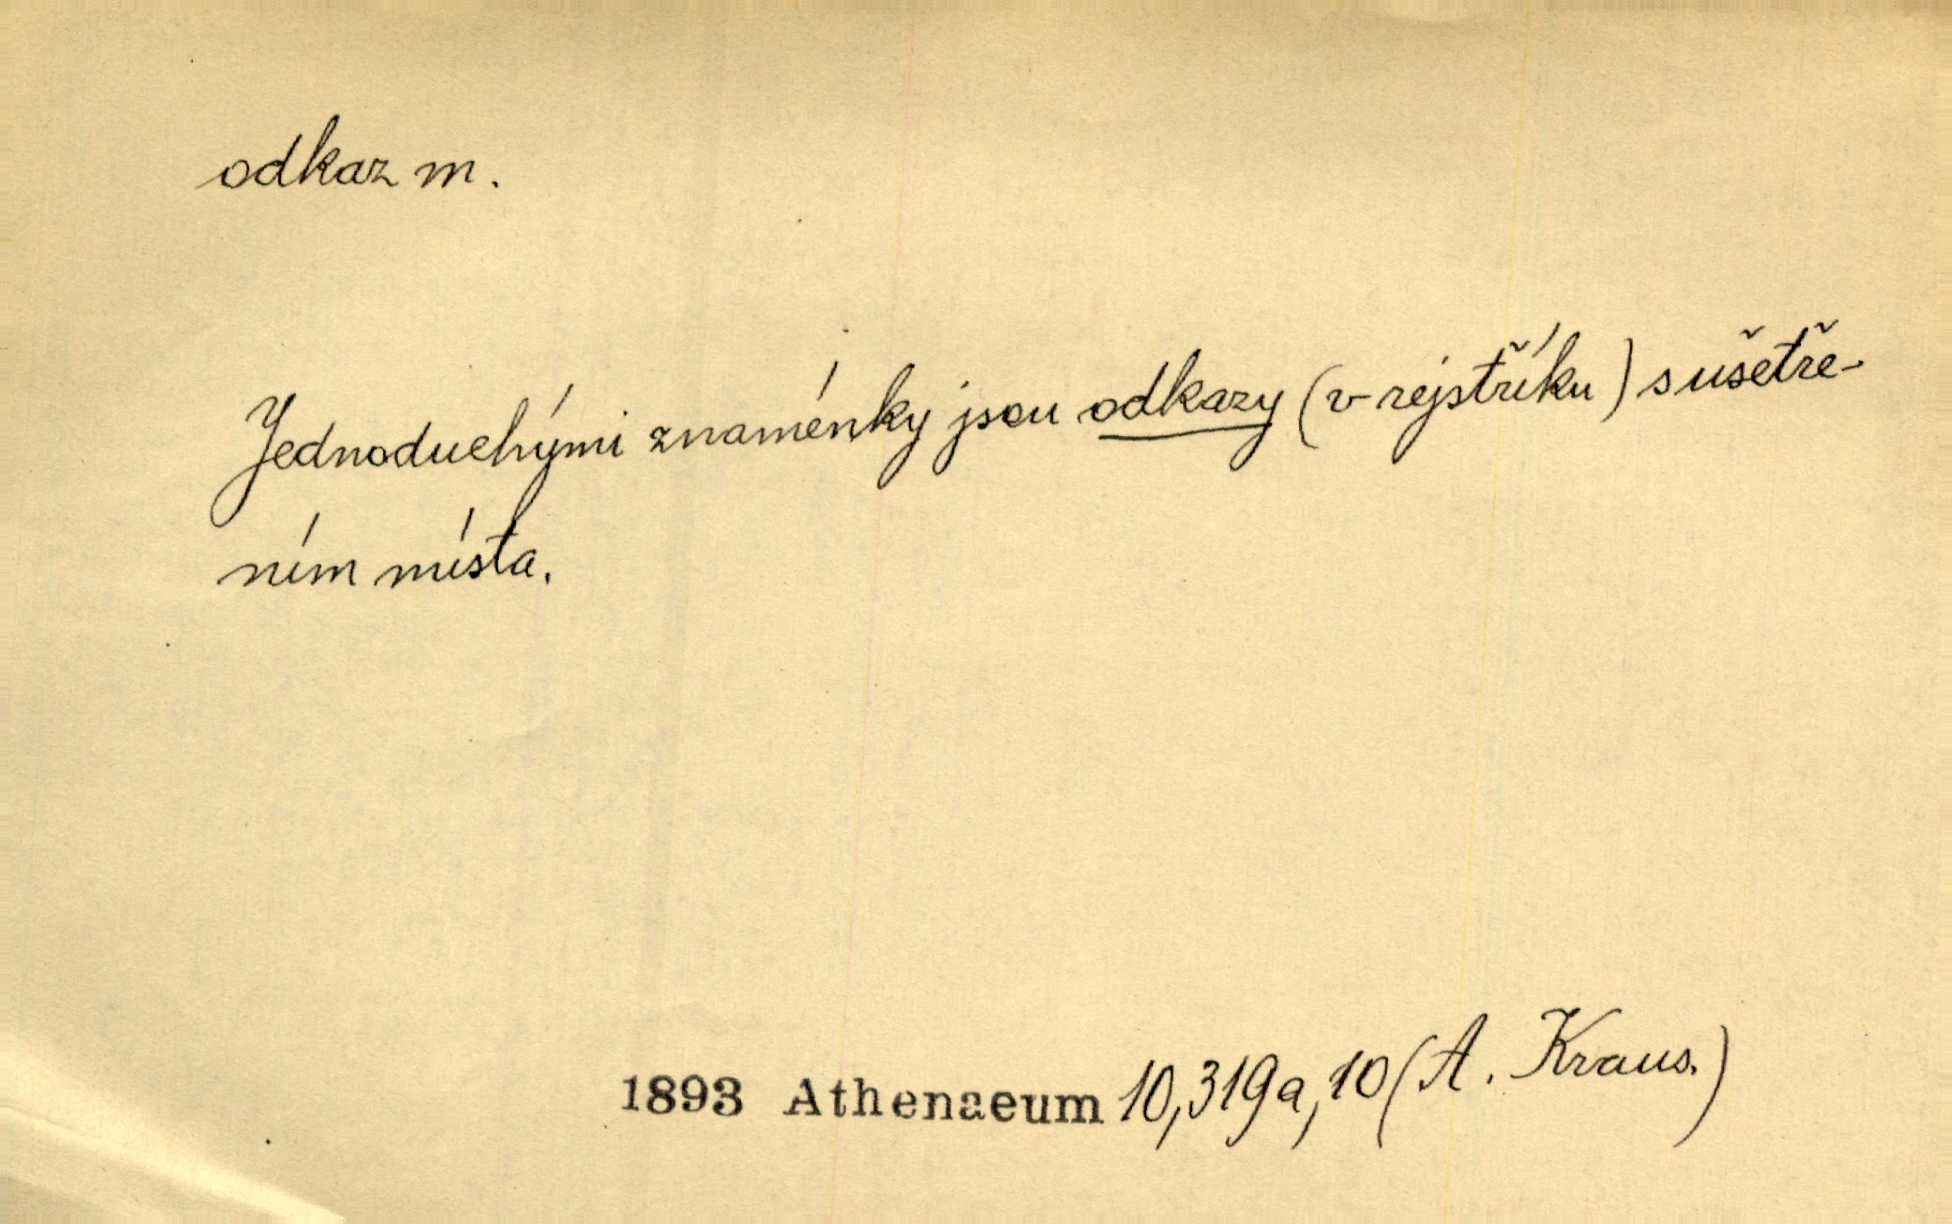 odkaz m.
Jednoduchými znaménky jsou odkazy (v rejstříku) s ušetře-
ním místa.
1893 Athenaeum 10,319a,10 (A. Kraus.)